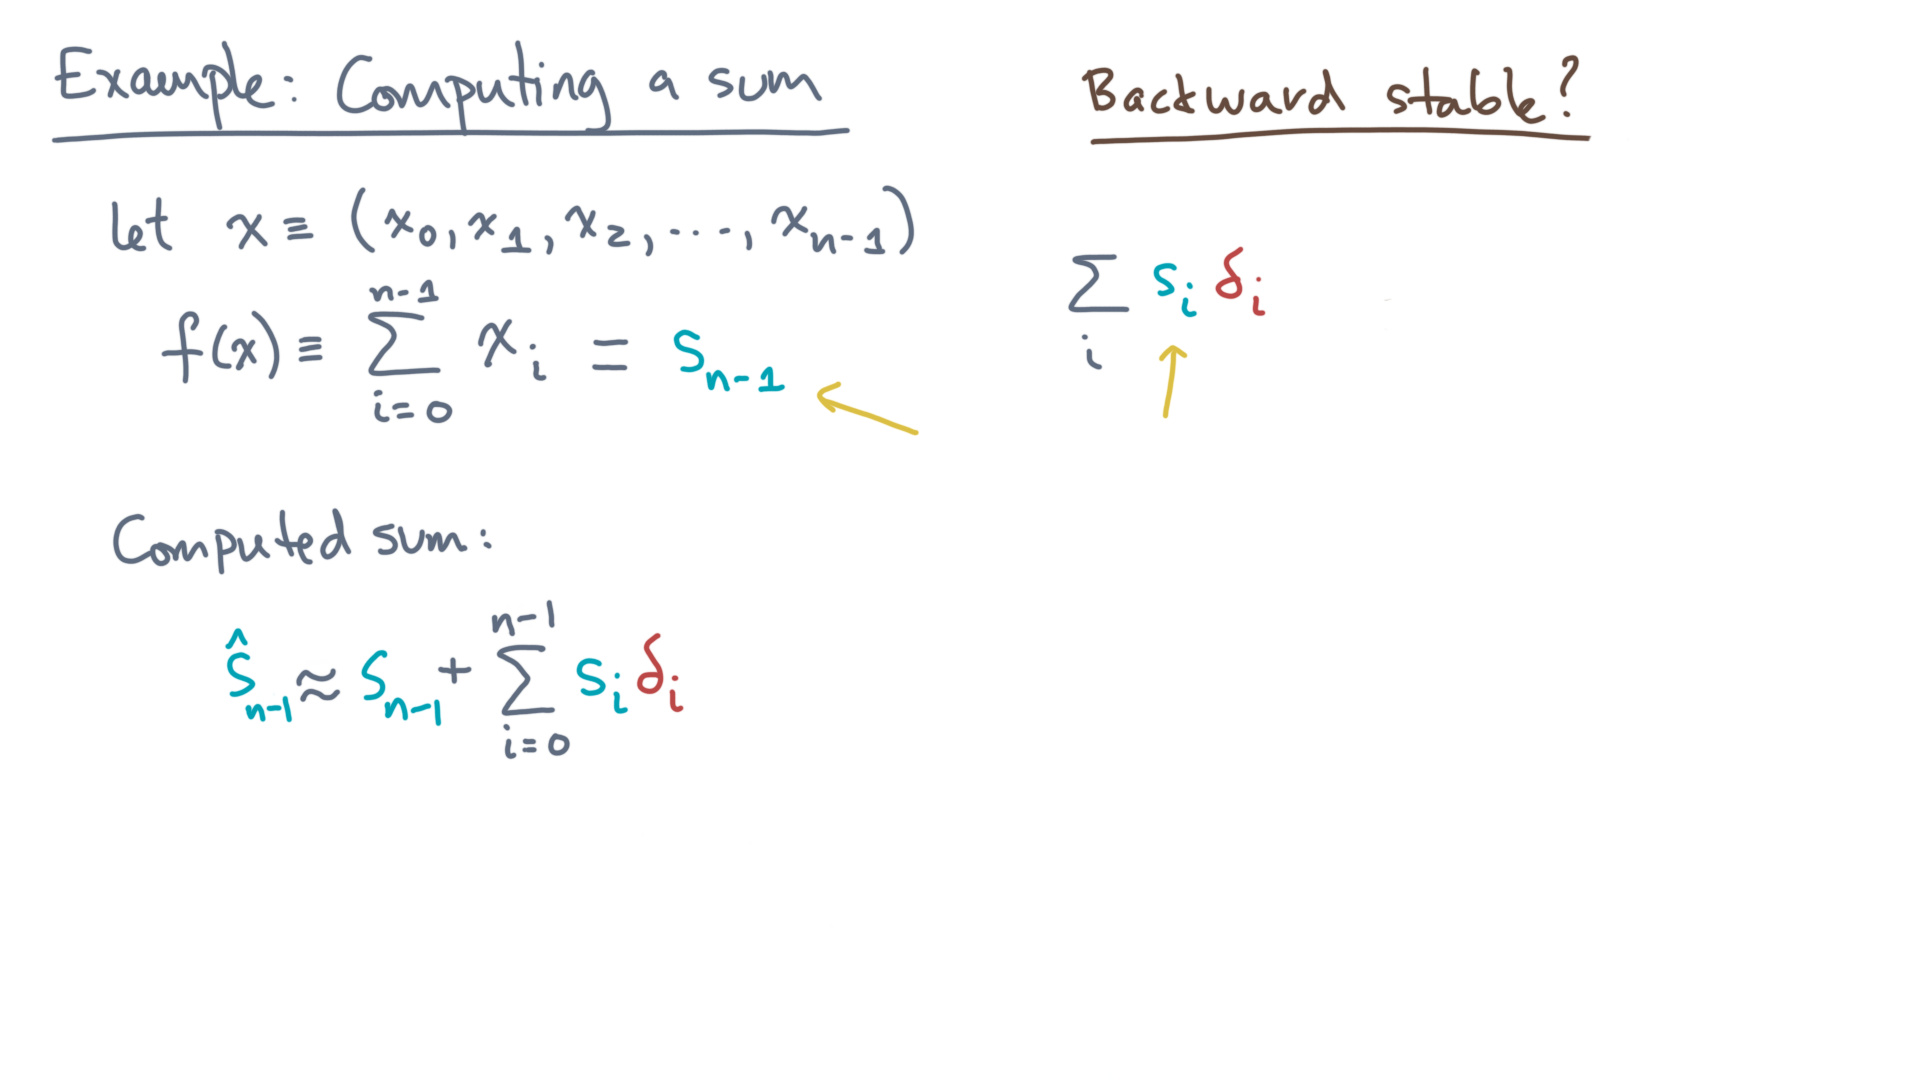 Example: Computing a sum
let x ≡ (x₀, x₁, x₂, ..., xₙ₋₁)
n-1
f(x) ≡ ∑ xᵢ = sₙ₋₁
i=0
Computed sum:
n-1
ŝₙ₋₁ ≈ sₙ₋₁ + ∑ sᵢ δᵢ
i=0
Backward stable?
∑ sᵢ δᵢ
i